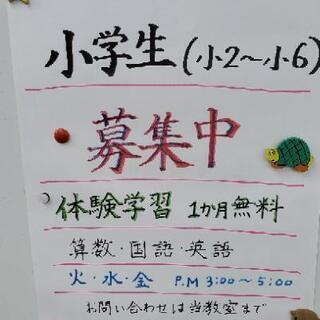 小学生(小2～小6)
募集中
体験学習 1か月無料
算数・国語・英語
火・水・金 P.M 3:00～5:00
お問い合わせは当教室まで